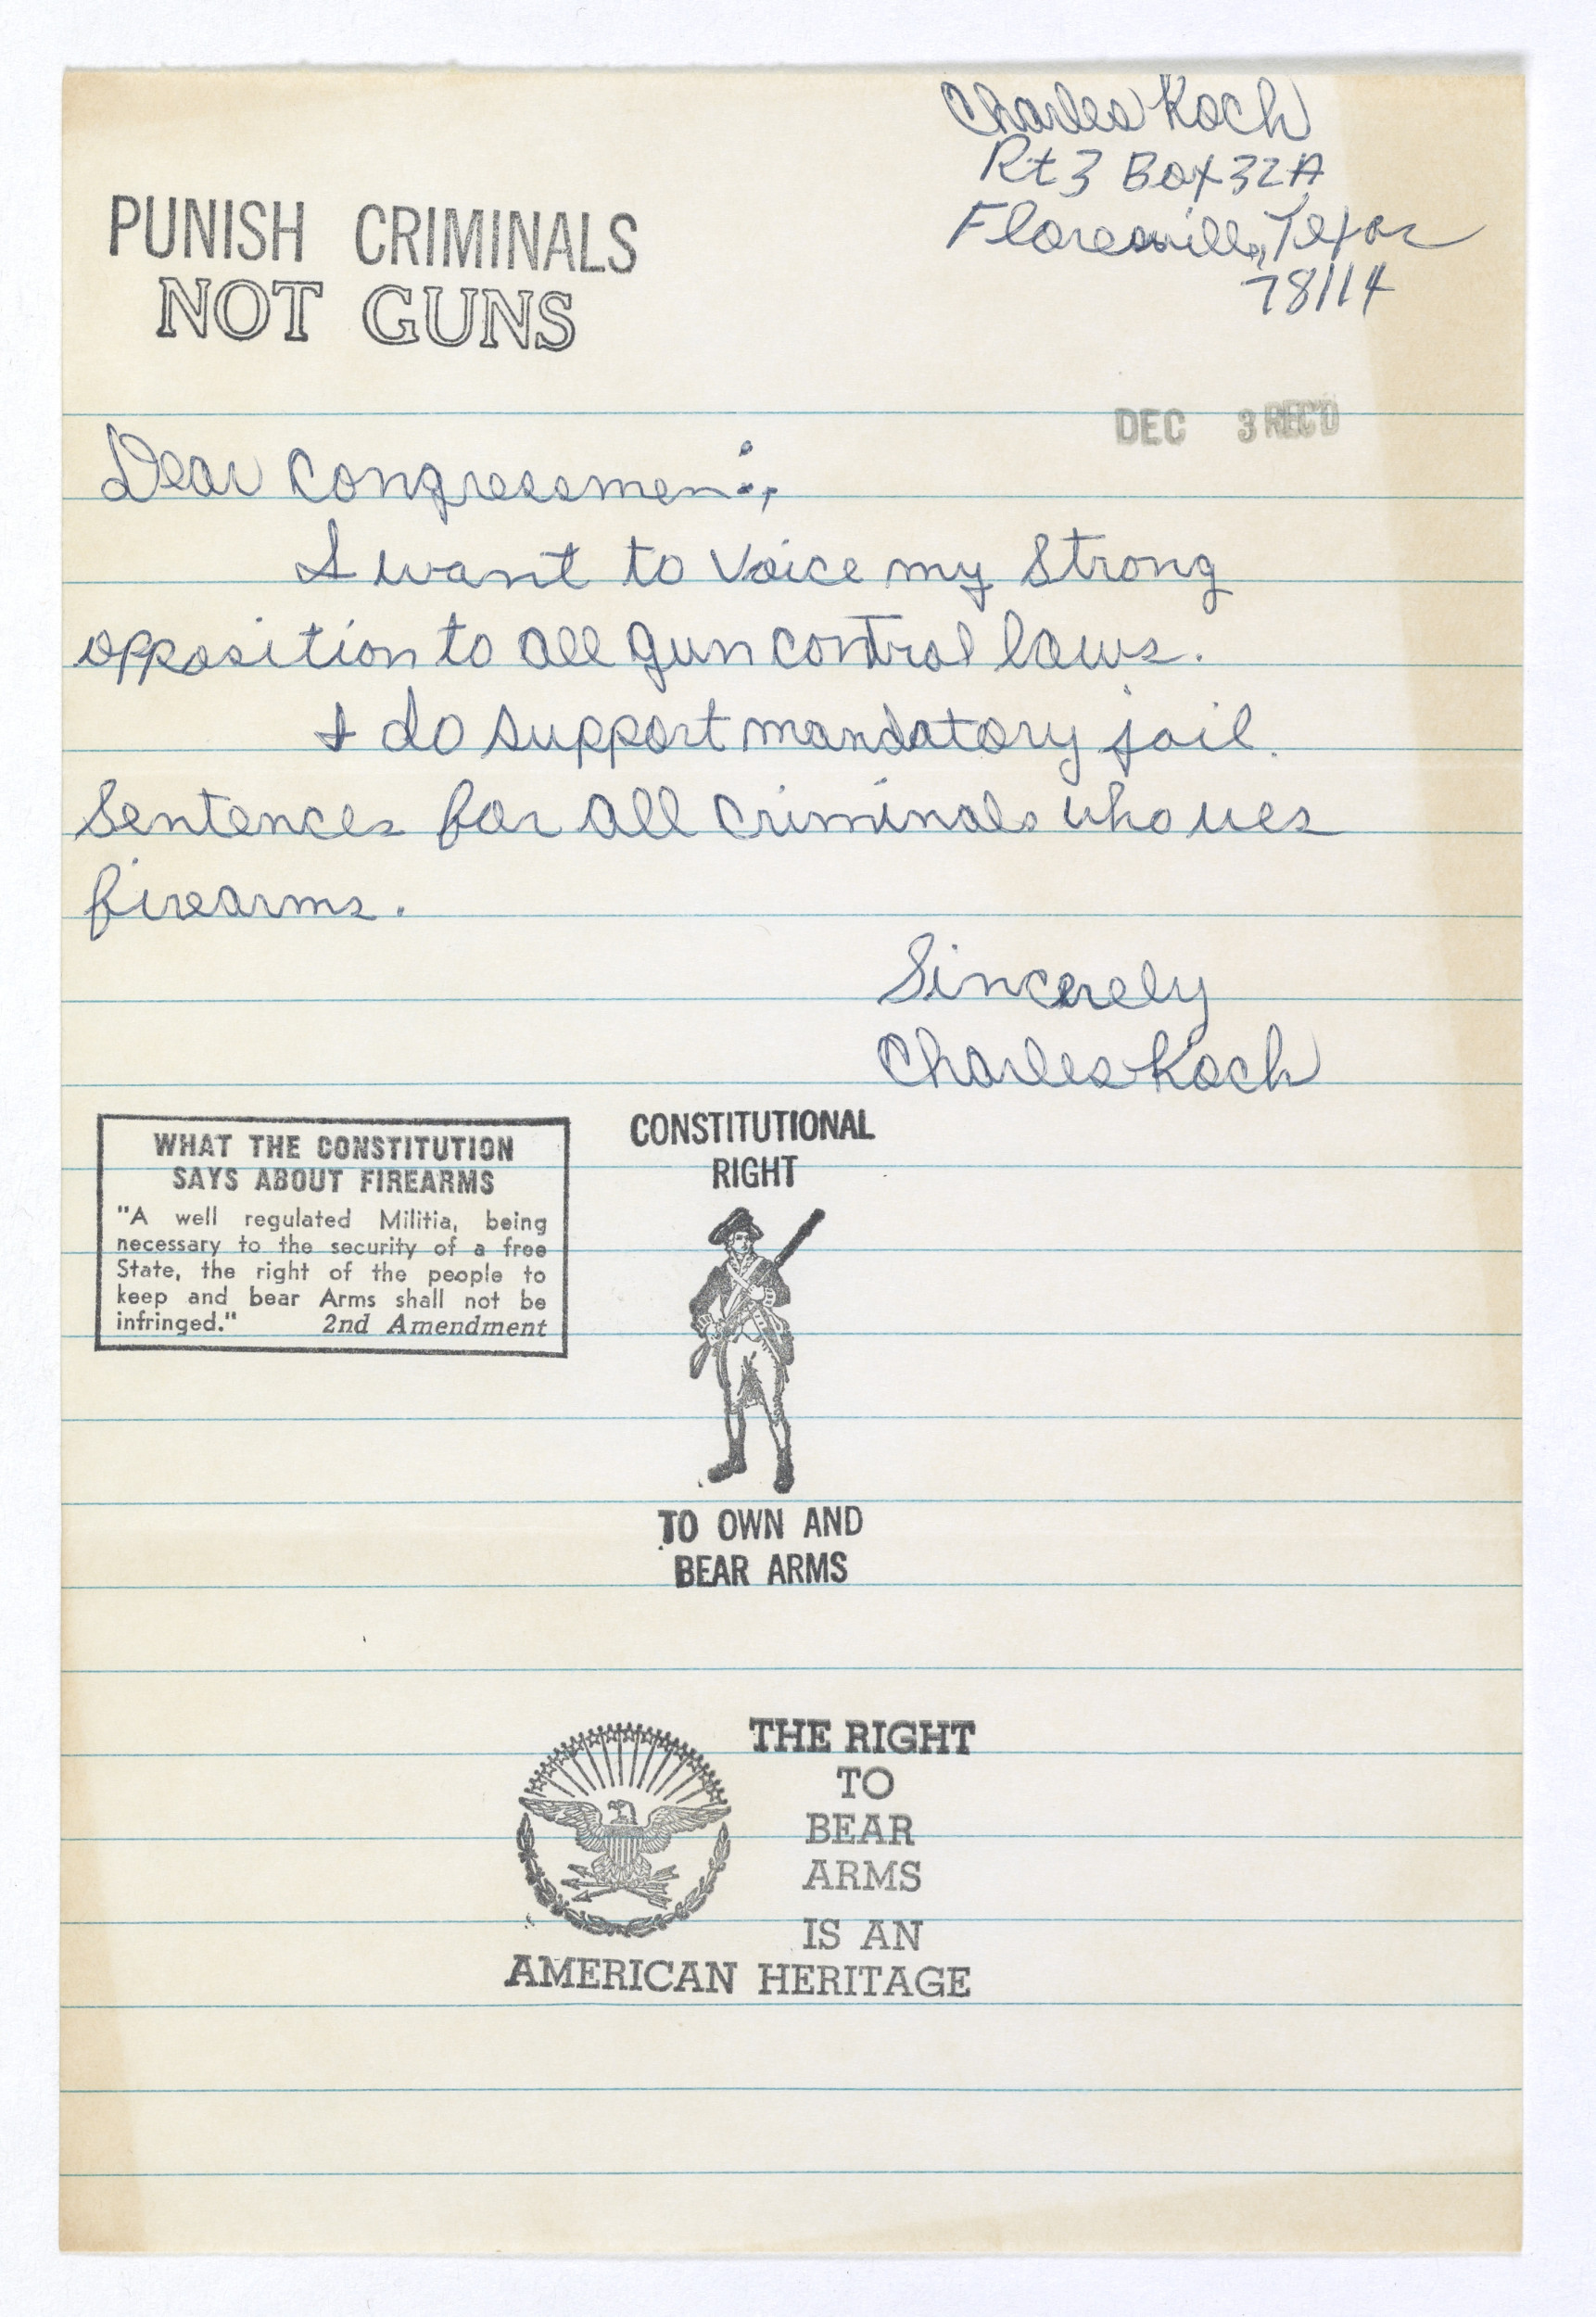 Charles Koch
Rt 3 Box 32A
Floresville, Texas
78114
PUNISH CRIMINALS
NOT GUNS
DEC 3 REC'D
Dear Congressmen:,
I want to Voice my Strong
opposition to all gun control laws.
I do support mandatory jail.
Sentences for all criminals who ues
firearms.
Sincerely
Charles Koch
WHAT THE CONSTITUTION
SAYS ABOUT FIREARMS
"A well regulated Militia, being
necessary to the security of a free
State, the right of the people to
keep and bear Arms shall not be
infringed." 2nd Amendment
CONSTITUTIONAL
RIGHT
TO OWN AND
BEAR ARMS
THE RIGHT
TO
BEAR
ARMS
IS AN
AMERICAN HERITAGE